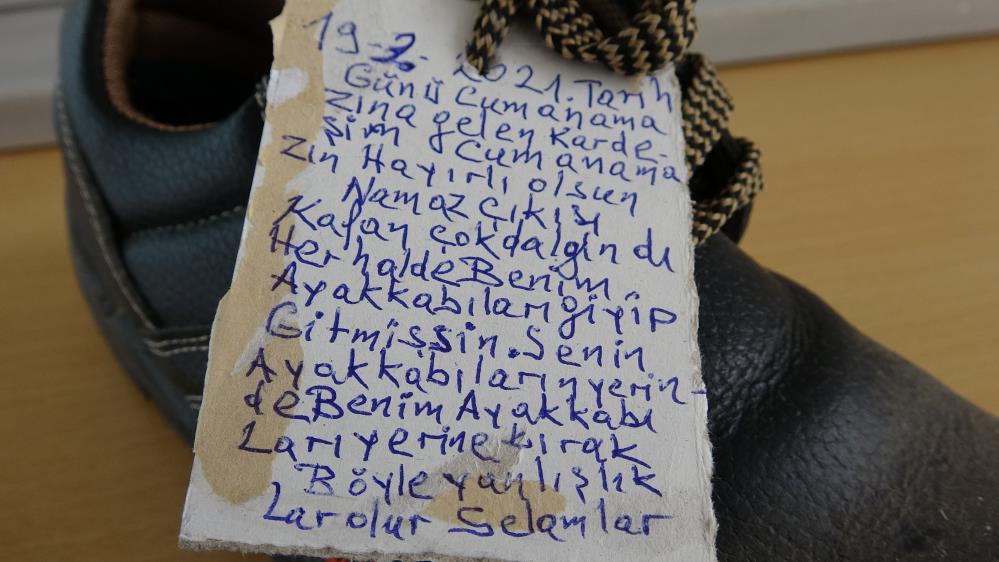 19-2-2021.Tarih
Günü Cumanama
zına gelen Karde-
şim Cumanama
zın Hayırlı olsun
Namaz çıkışı
Kafan çokdalgın dı
Her haldeBenim
Ayakkabıları giyip
Gitmişsin.Senin
Ayakkabıların yerin-
deBenim Ayakkabı
Ları yerine bırak
Böyle yanlışlık
Lar olur Selamlar